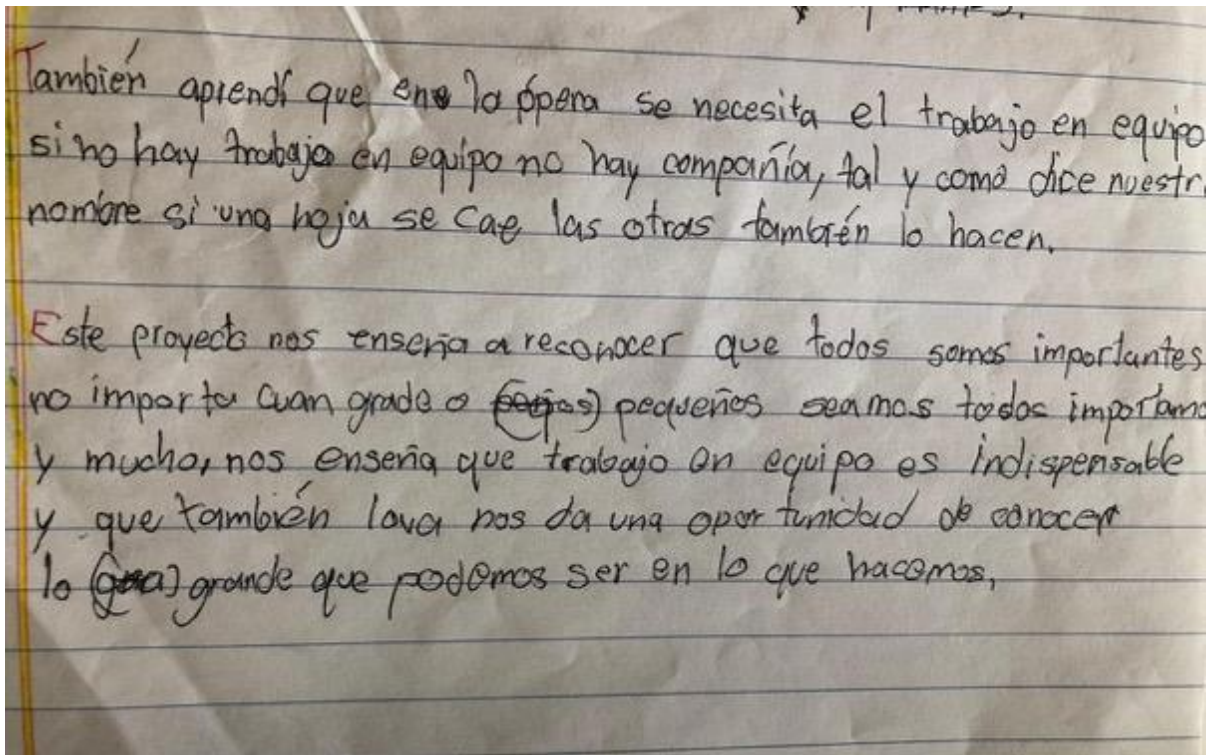 También aprendí que en la ópera se necesita el trabajo en equipo
si no hay trabajo en equipo no hay compañía, tal y como dice nuestr
nombre si una hoja se cae las otras también lo hacen.
Este proyecto nos enseña a reconocer que todos somos importantes
no importa cuan grade o pequeños seamos todos importamo
y mucho, nos enseña que trabajo en equipo es indispensable
y que también lova nos da una oportunidad de conocer
lo grande que podemos ser en lo que hacemos,